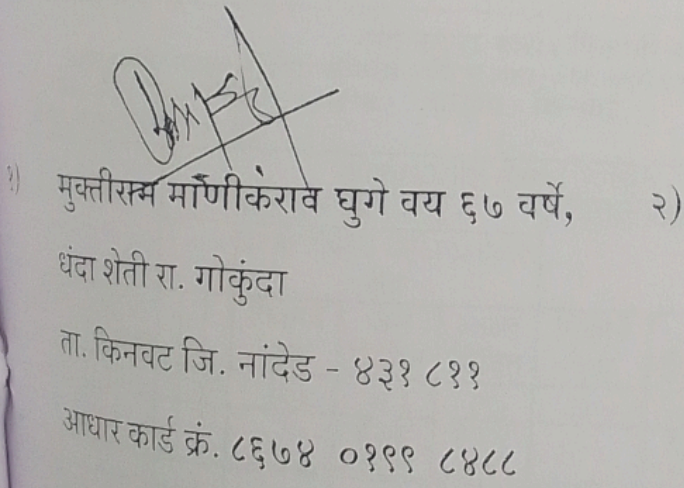 १) मुक्तीराम माणीकराव घुगे वय ६७ वर्षे, २)
धंदा शेती रा. गोकुंदा
ता. किनवट जि. नांदेड - ४३१ ८११
आधार कार्ड क्रं. ८६७४ ०१९९ ८४८८